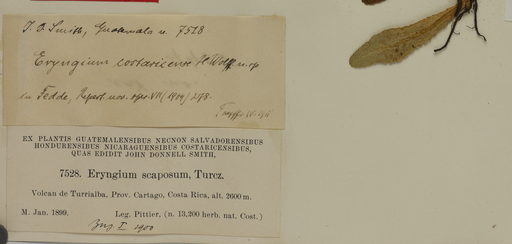 J. D. Smith, Guatemala n. 7528
Eryngium costaricense H. Wolff n. sp
in Fedde, Repert. nov. spec. VII (1909) 278.
EX PLANTIS GUATEMALENSIBUS NECNON SALVADORENSIBUS
HONDURENSIBUS NICARAGUENSIBUS COSTARICENSIBUS,
QUAS EDIDIT JOHN DONNELL SMITH,
7528. Eryngium scaposum, Turcz.
Volcan de Turrialba, Prov. Cartago, Costa Rica, alt. 2600 m.
M. Jan. 1899. Leg. Pittier, (n. 13,200 herb. nat. Cost.)
I. 1900